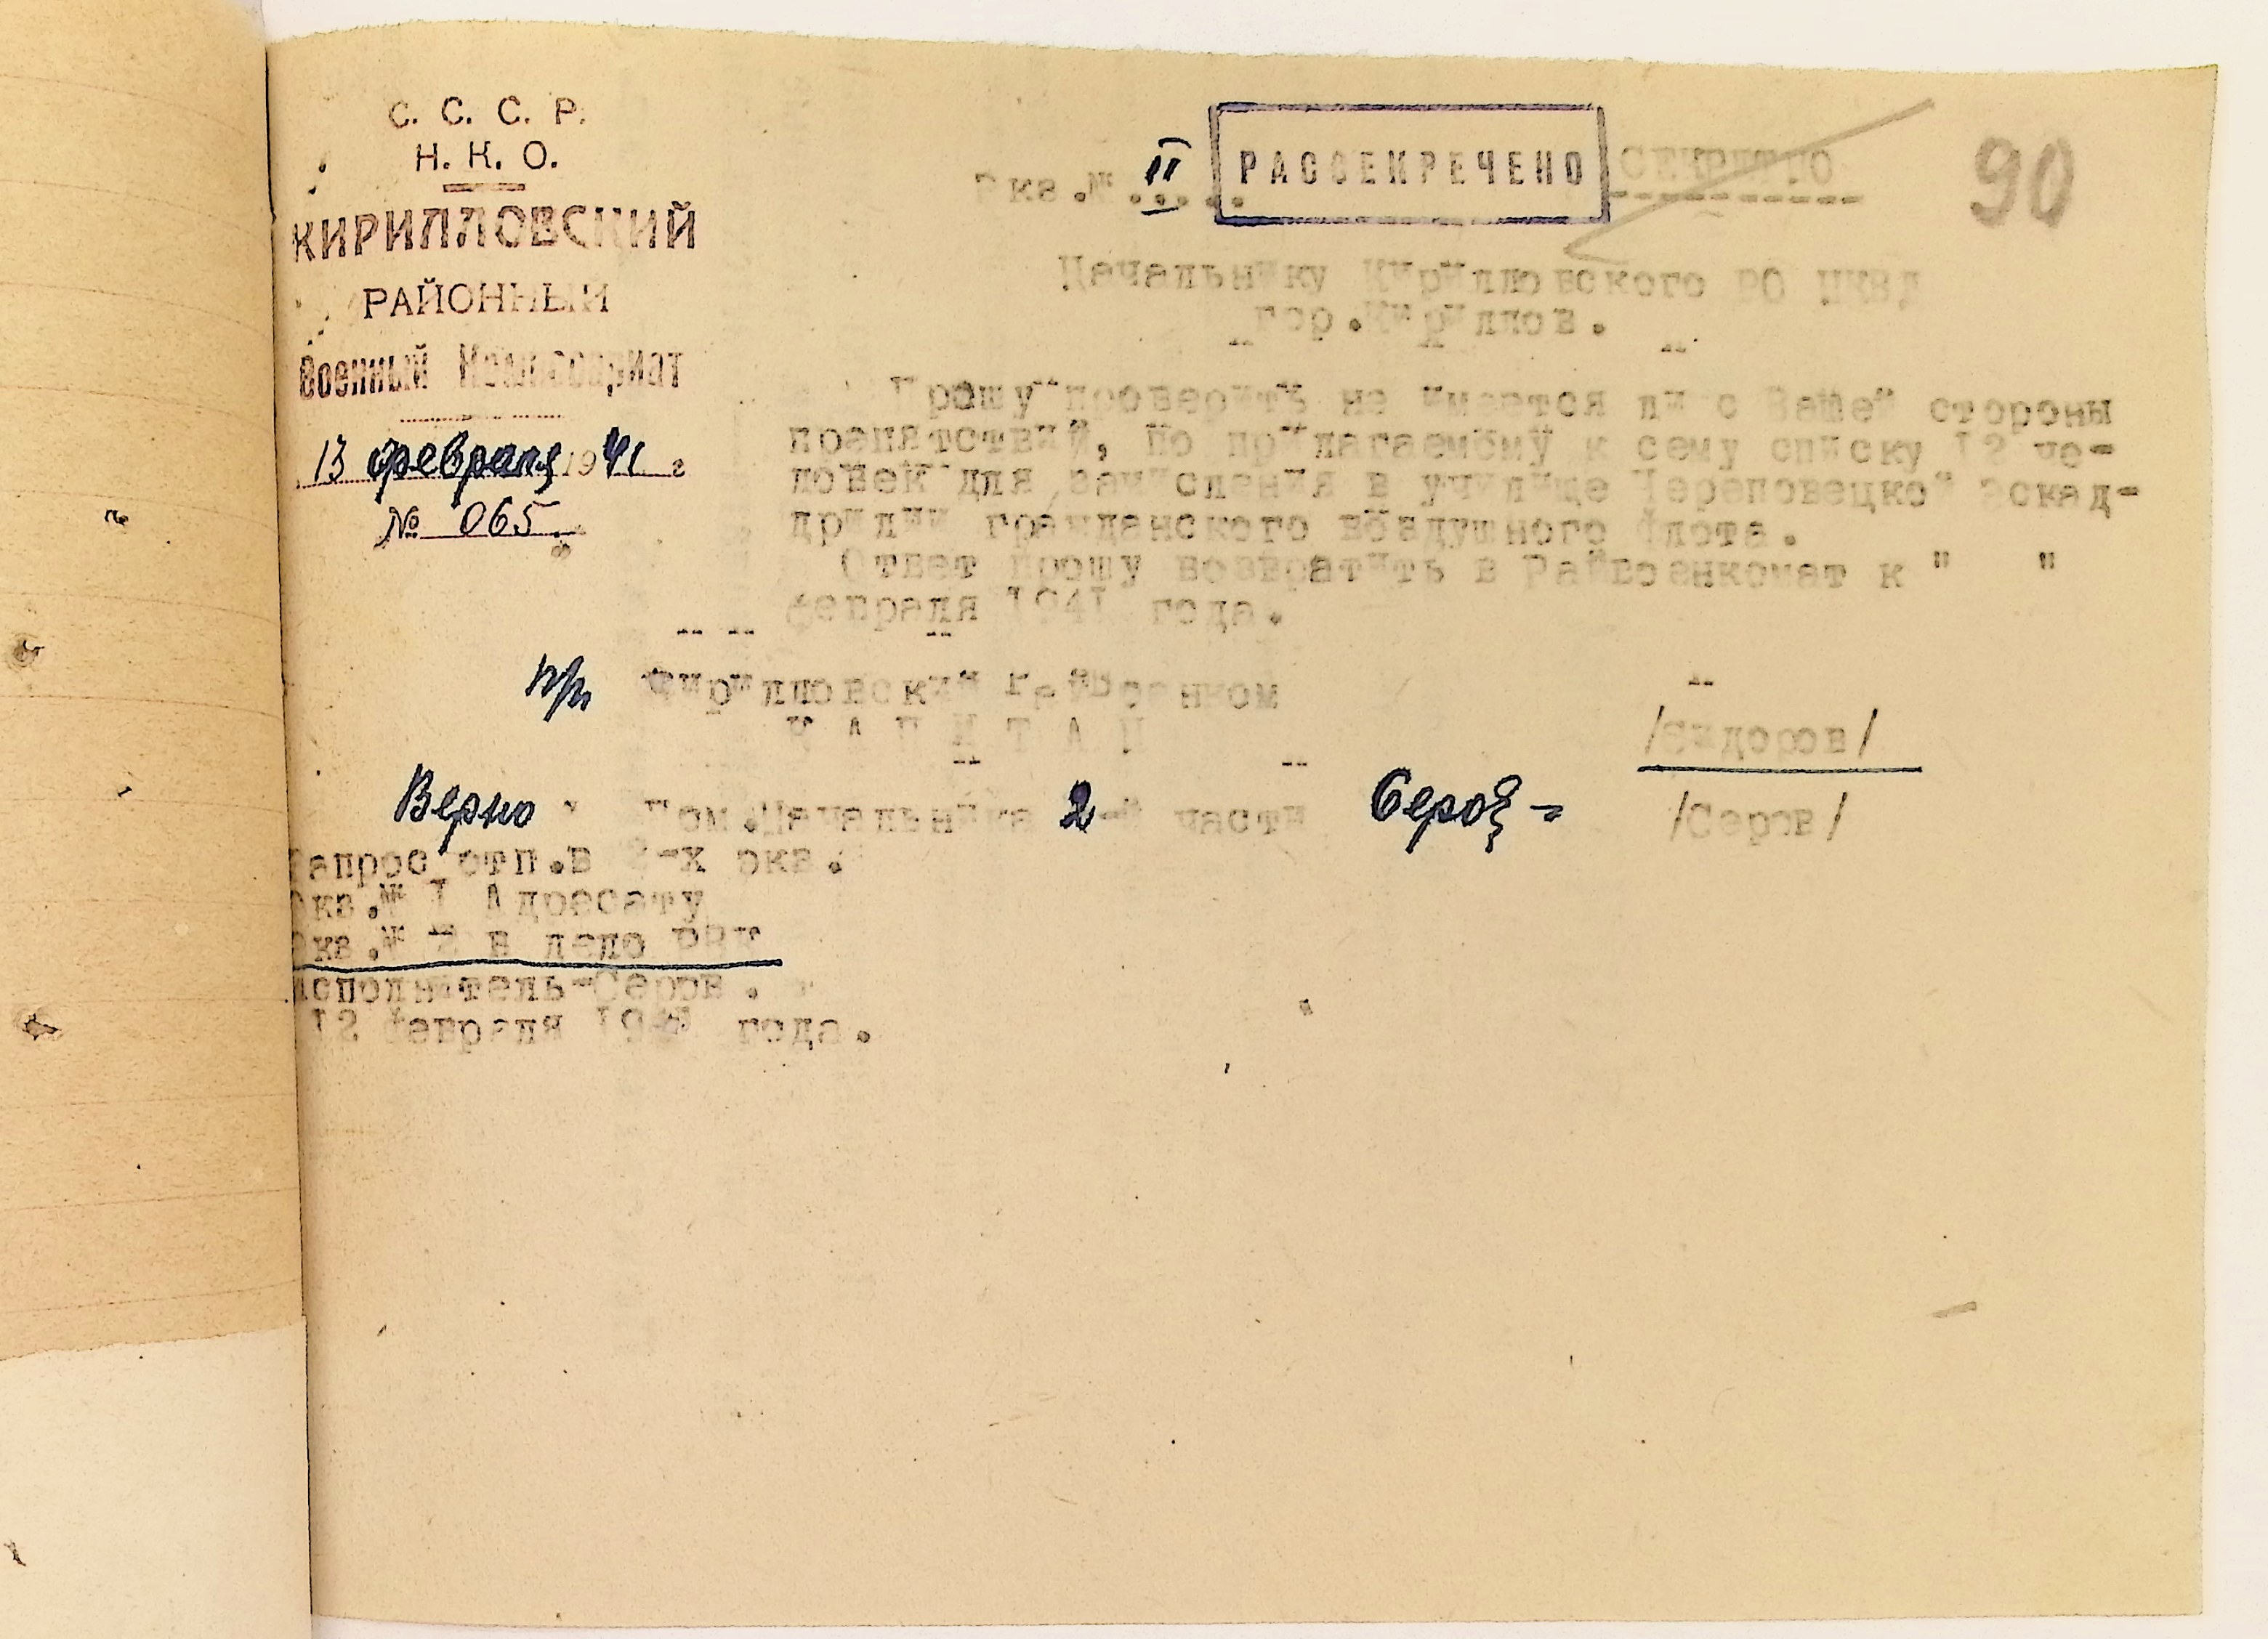 С. С. С. Р.
Н. К. О.
КИРИЛЛОВСКИЙ
РАЙОННЫЙ
Военный Комиссариат
13 февраля 1941 г
№ 065
экз.№ II
РАССЕКРЕЧЕНО
СЕКРЕТНО
90
Начальнику Кирилловского РО НКВД
гор.Кириллов.
Прошу проверить не имеется ли с Вашей стороны
препятствий, по прилагаемому к сему списку 12 че-
ловек для зачисления в училище Череповецкой эскад-
рилии гражданского воздушного флота.
Ответ прошу возвратить в Райвоенкомат к " "
февраля 1941 года.
п/п Кирилловский Райвоенком
КАПИТАН
/Сидоров/
Верно: Пом.Начальника 2-й части Серов /Серов/
Запрос отп.в 2-х экз.
Экз.№ I Адресату
Экз.№ 2 в дело РВК
Исполнитель-Серов.
12 февраля 1941 года.